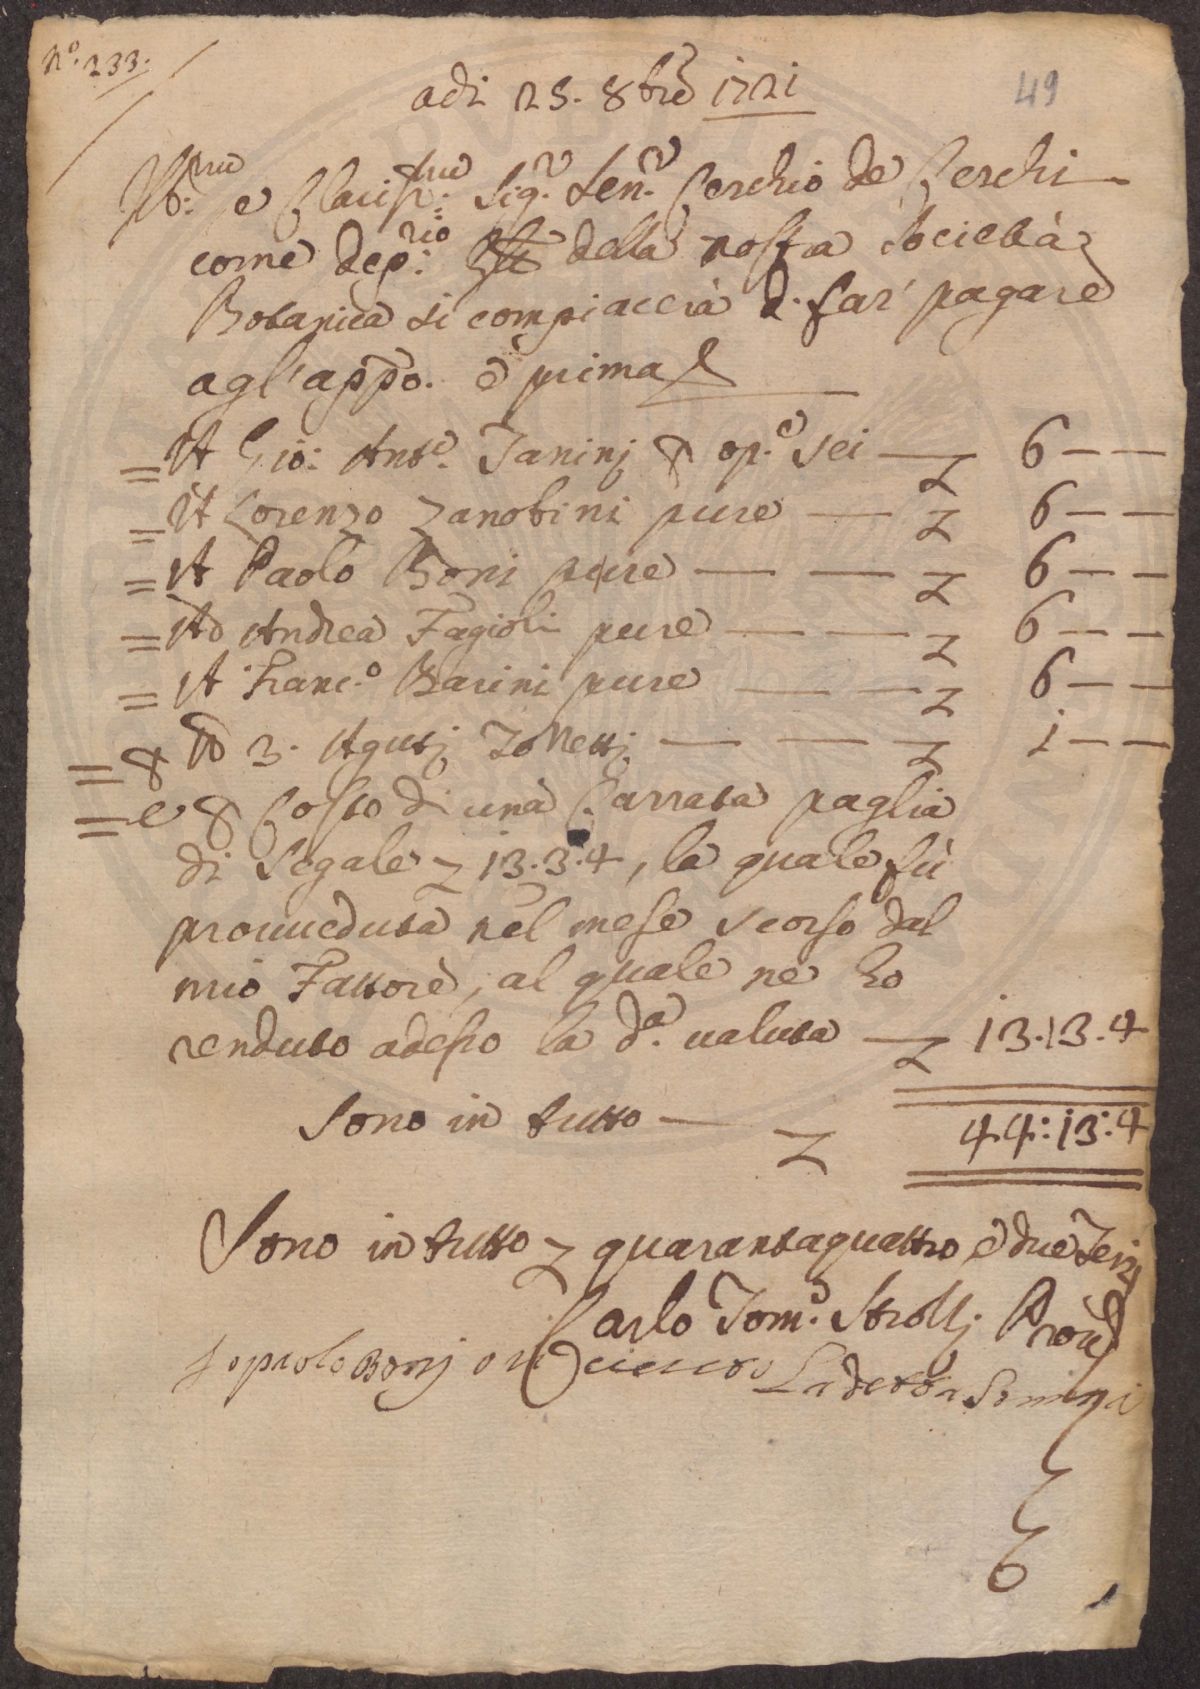 N.º 233.
49
adi 25. 8bre 1721
Ill.mo e Clariss.mo Sig.r Sen.r Cerchio de Cerchi
come dep.rio della nostra Società
Botanica si compiacerà d. far' pagare
agl'appo. e prima
A Gio: Ant.o Janinj p op.e sei — 6 — —
A Lorenzo Zanobini pure — 6 — —
A Paolo Boni pure — — 6 — —
Ad Andrea Fagioli pure — — 6 — —
A Franc.o Barini pure — — 6 — —
p N.º 3. Agutj — — 1 — —
e p Costo di una Carrata paglia
di Segale 13.3.4, la quale fù
proueduta nel mese scorso dal
mio Fattore, al quale ne ho
renduto adesso la d.a ualuta — 13.13.4
Sono in tutto — 44:13:4
Sono in tutto quarantaquattro e due Terzj
Carlo Tom.o Strozzj Prou.e
Io paolo Bonj o riceuuto La detta Somma